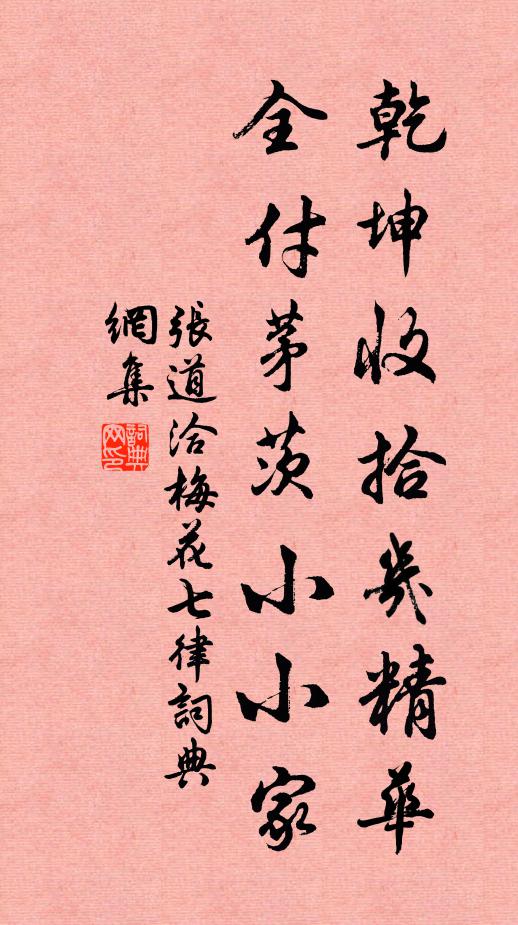 乾坤收拾幾精華
全付茅茨小小家
張道洽梅花七律詞典
網集
詞典
网印